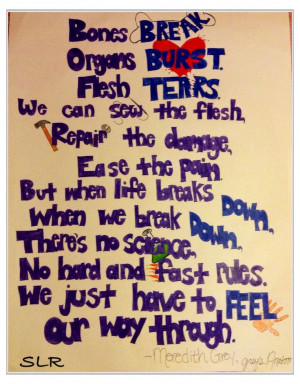 Bones BREAK
Organs BURST.
Flesh TEARS.
We can sew the flesh,
Repair the damage,
Ease the pain.
But when life breaks DOWN,
When we break DOWN,
There's no science,
No hard and fast rules.
We just have to FEEL
our way through.
-Meredith Grey, Grey's Anatomy
SLR